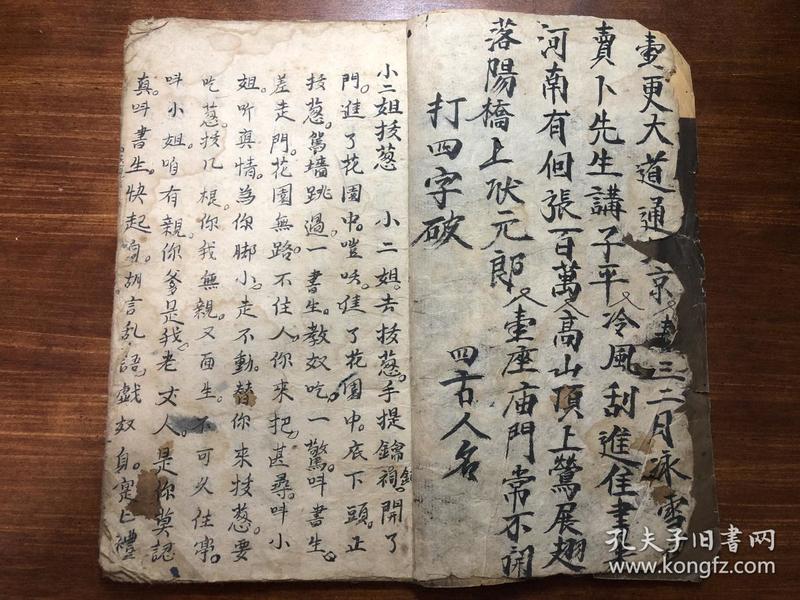 壹更大道通京三二月冰雪
賣卜先生講子平冷風刮進住書
河南有個張百萬高山頂上鶯展翅
落陽橋上狀元郎壹座庙門常不開
打四字破 四古人名
小二姐技葱 小二姐去技葱手提鑰 開了
門進了花園中嗟呋進了花園中底下頭正
技葱鴛墻跳過一書生教奴吃一驚呌書生
差走門花園無路不住人你来把甚尋呌小
姐听真情為你脚小走不動替你来技葱要
吃葱技几根你我無親又面生不可久住
呌小姐咱有親你爹是我老丈人是你莫認
真呌書生快起 胡言乱語戯奴身 七禮
孔夫子旧書网
www.kongfz.com